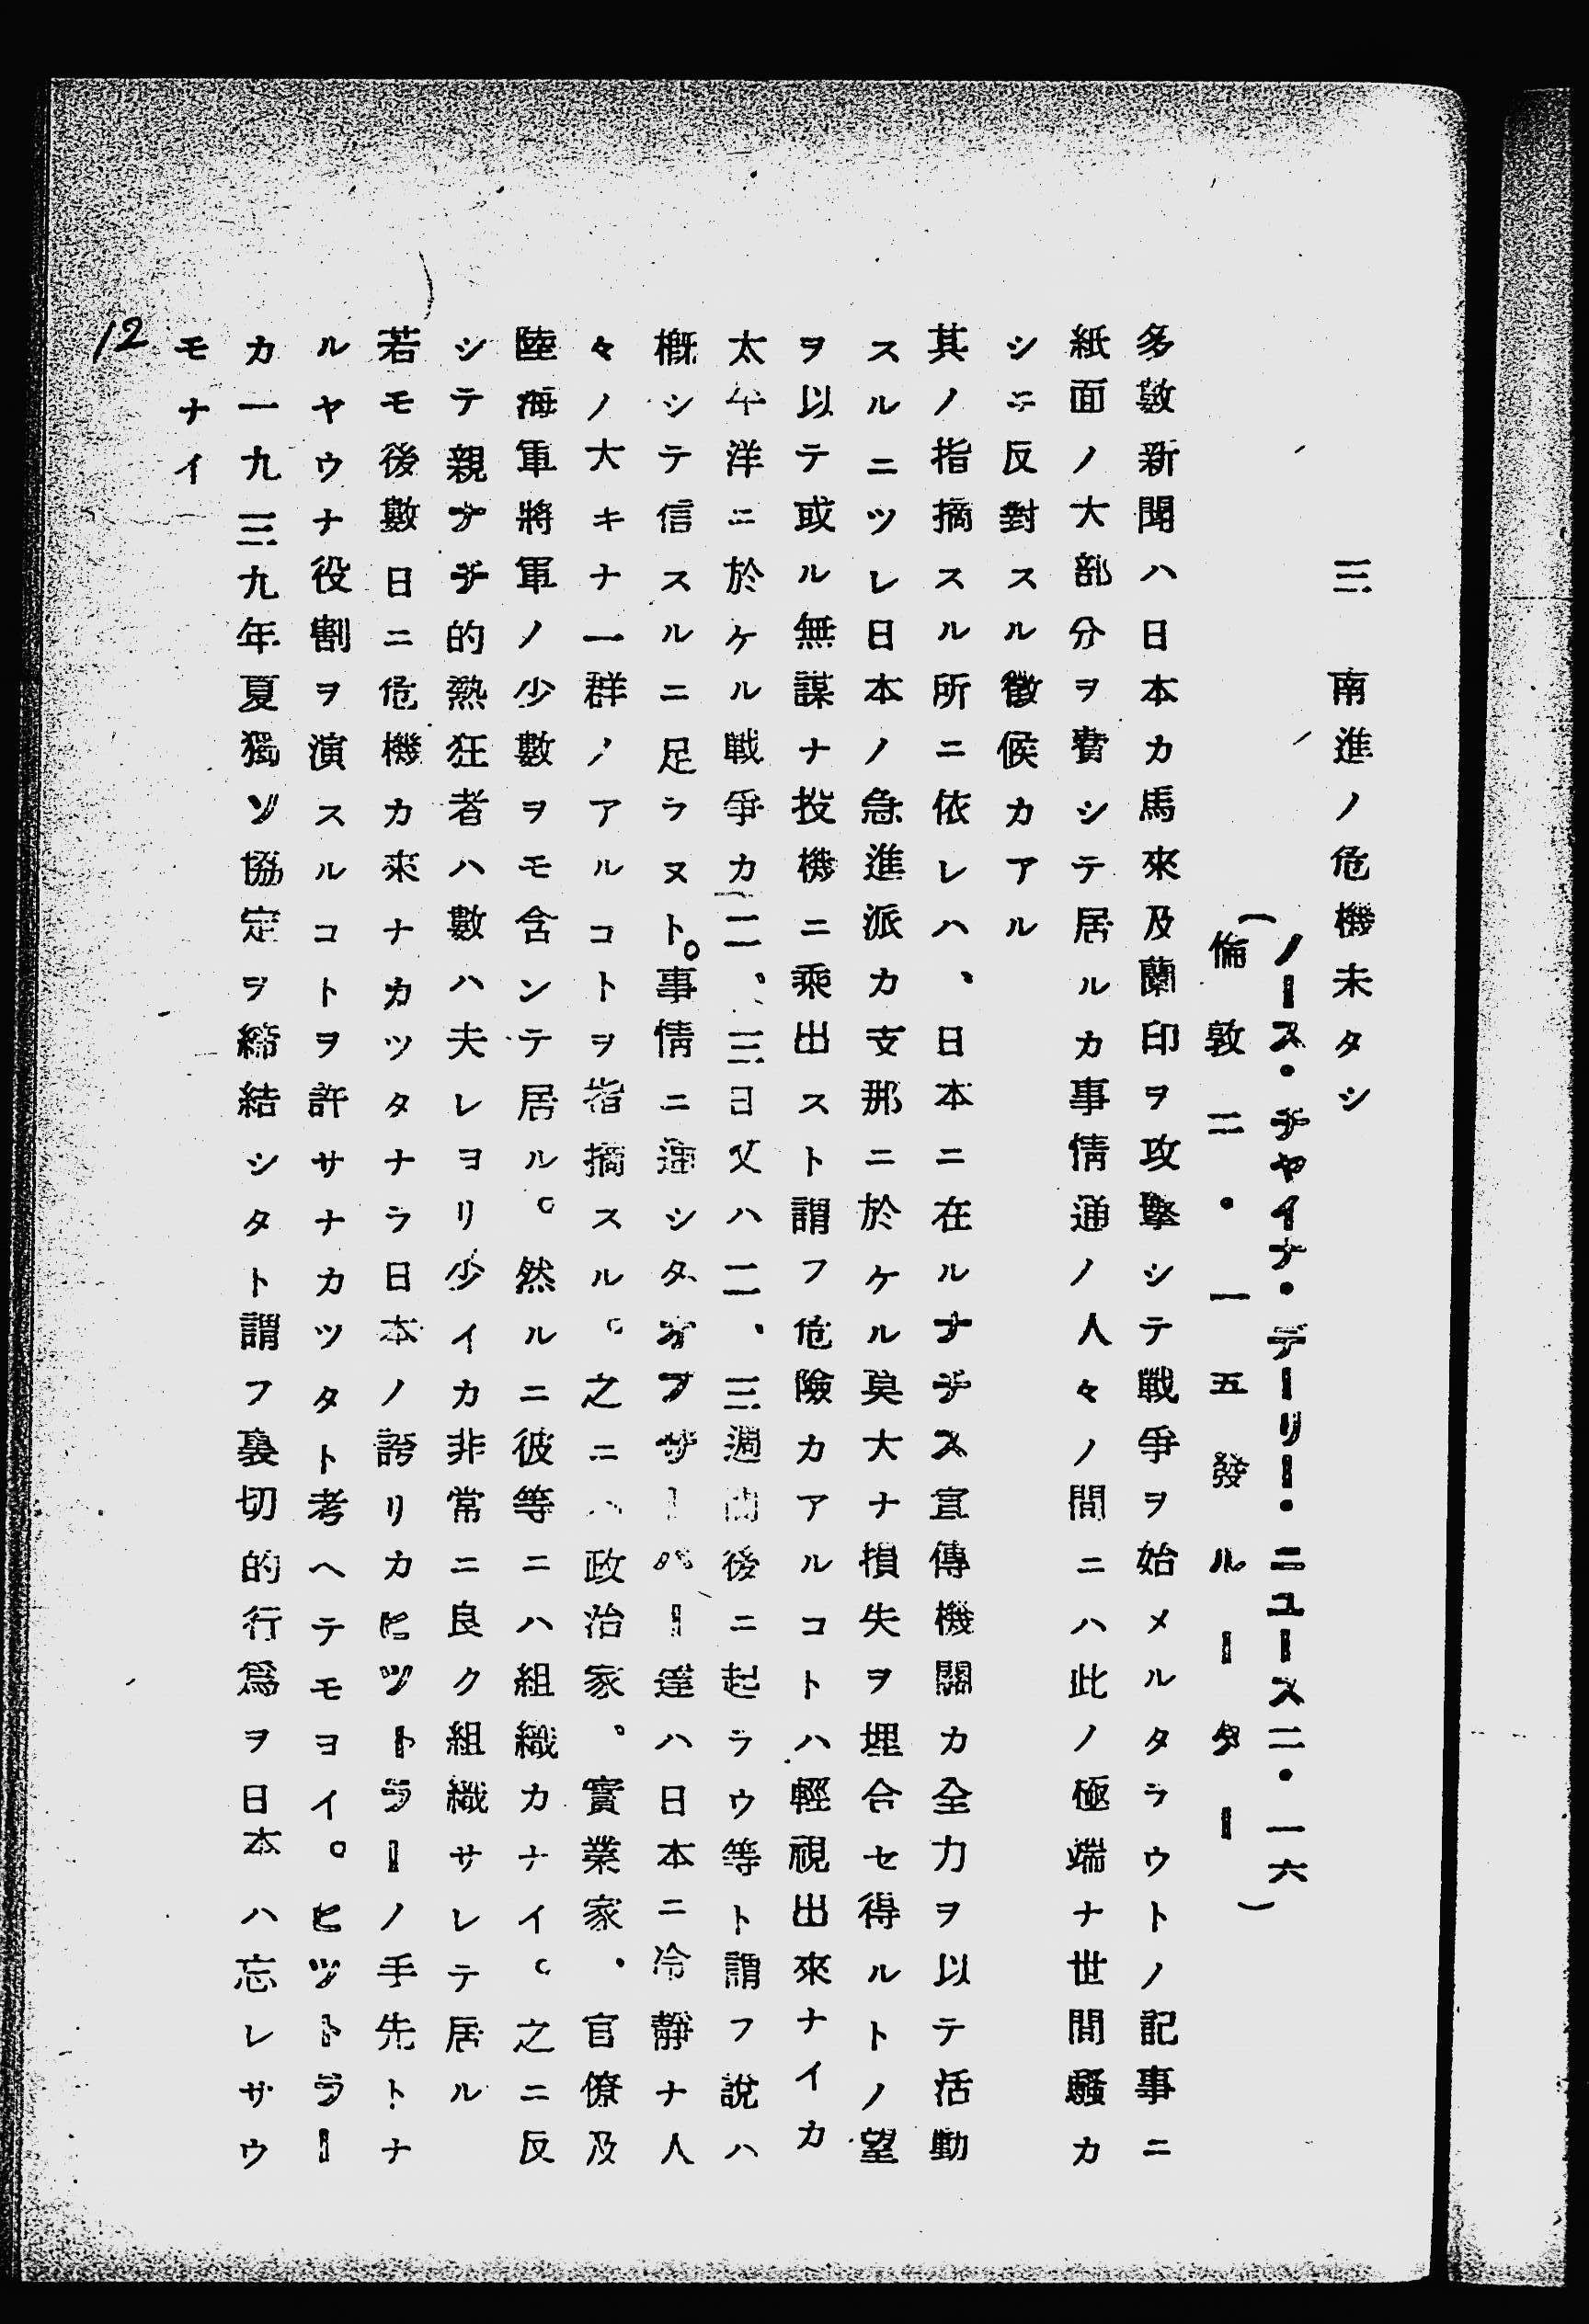 三　南進ノ危機未タシ
（ノース・チャイナ・デーリー・ニュース二・一六
倫敦二・一五發ルーター）
多數新聞ハ日本カ馬來及蘭印ヲ攻擊シテ戰爭ヲ始メルタラウトノ記事ニ
紙面ノ大部分ヲ費シテ居ルカ事情通ノ人々ノ間ニハ此ノ極端ナ世間騷カ
シニ反對スル徵候カアル
其ノ指摘スル所ニ依レハ、日本ニ在ルナチス宣傳機關カ全力ヲ以テ活動
スルニツレ日本ノ急進派カ支那ニ於ケル莫大ナ損失ヲ埋合セ得ルトノ望
ヲ以テ或ル無謀ナ投機ニ乘出スト謂フ危險カアルコトハ輕視出來ナイカ
太平洋ニ於ケル戰爭カ二、三日又ハ二、三週間後ニ起ラウ等ト謂フ說ハ
槪シテ信スルニ足ラヌト。事情ニ通シタオブザーバー達ハ日本ニ冷靜ナ人
々ノ大キナ一群ノアルコトヲ指摘スル。之ニハ政治家、實業家、官僚及
陸海軍將軍ノ少數ヲモ含ンテ居ル。然ルニ彼等ニハ組織カナイ。之ニ反
シテ親ナチ的熱狂者ハ數ハ夫レヨリ少イカ非常ニ良ク組織サレテ居ル
若モ後數日ニ危機カ來ナカツタナラ日本ノ誇リカヒツトラーノ手先トナ
ルヤウナ役割ヲ演スルコトヲ許サナカツタト考ヘテモヨイ。ヒツトラー
カ一九三九年夏獨ソ協定ヲ締結シタト謂フ裏切的行爲ヲ日本ハ忘レサウ
モナイ
12